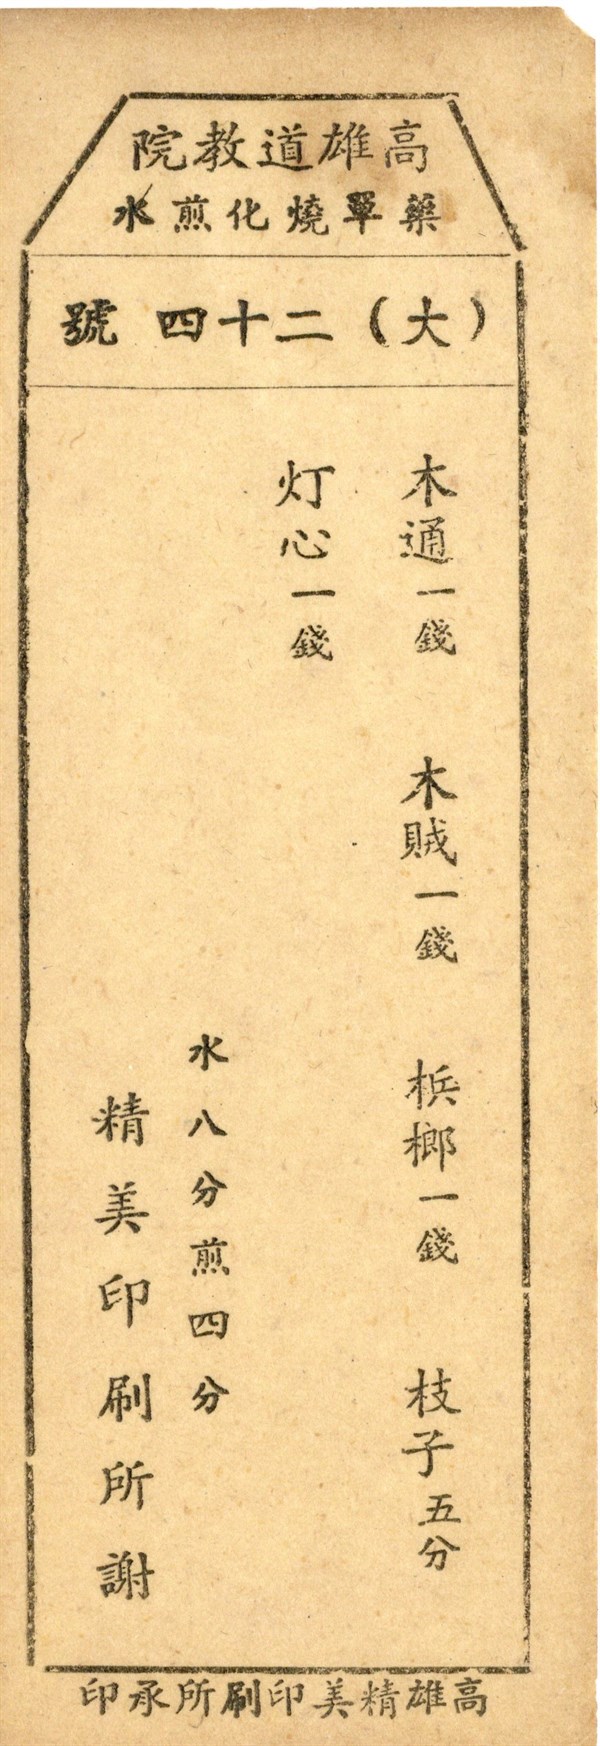 高雄道教院
藥單燒化煎水
（大）二十四號
木通一錢 木賊一錢 梹榔一錢 枝子五分
灯心一錢
水八分煎四分
精美印刷所謝
高雄精美印刷所承印